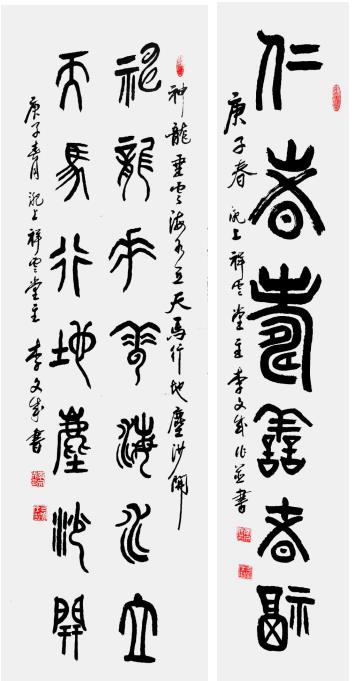 仁者壽善者福
庚子春上祥雲堂主李文成作並書
神龍垂雲海水立天馬行地塵沙開
神龍垂雲海水立
天馬行地塵沙開
庚子春月上祥雲堂主李文成書